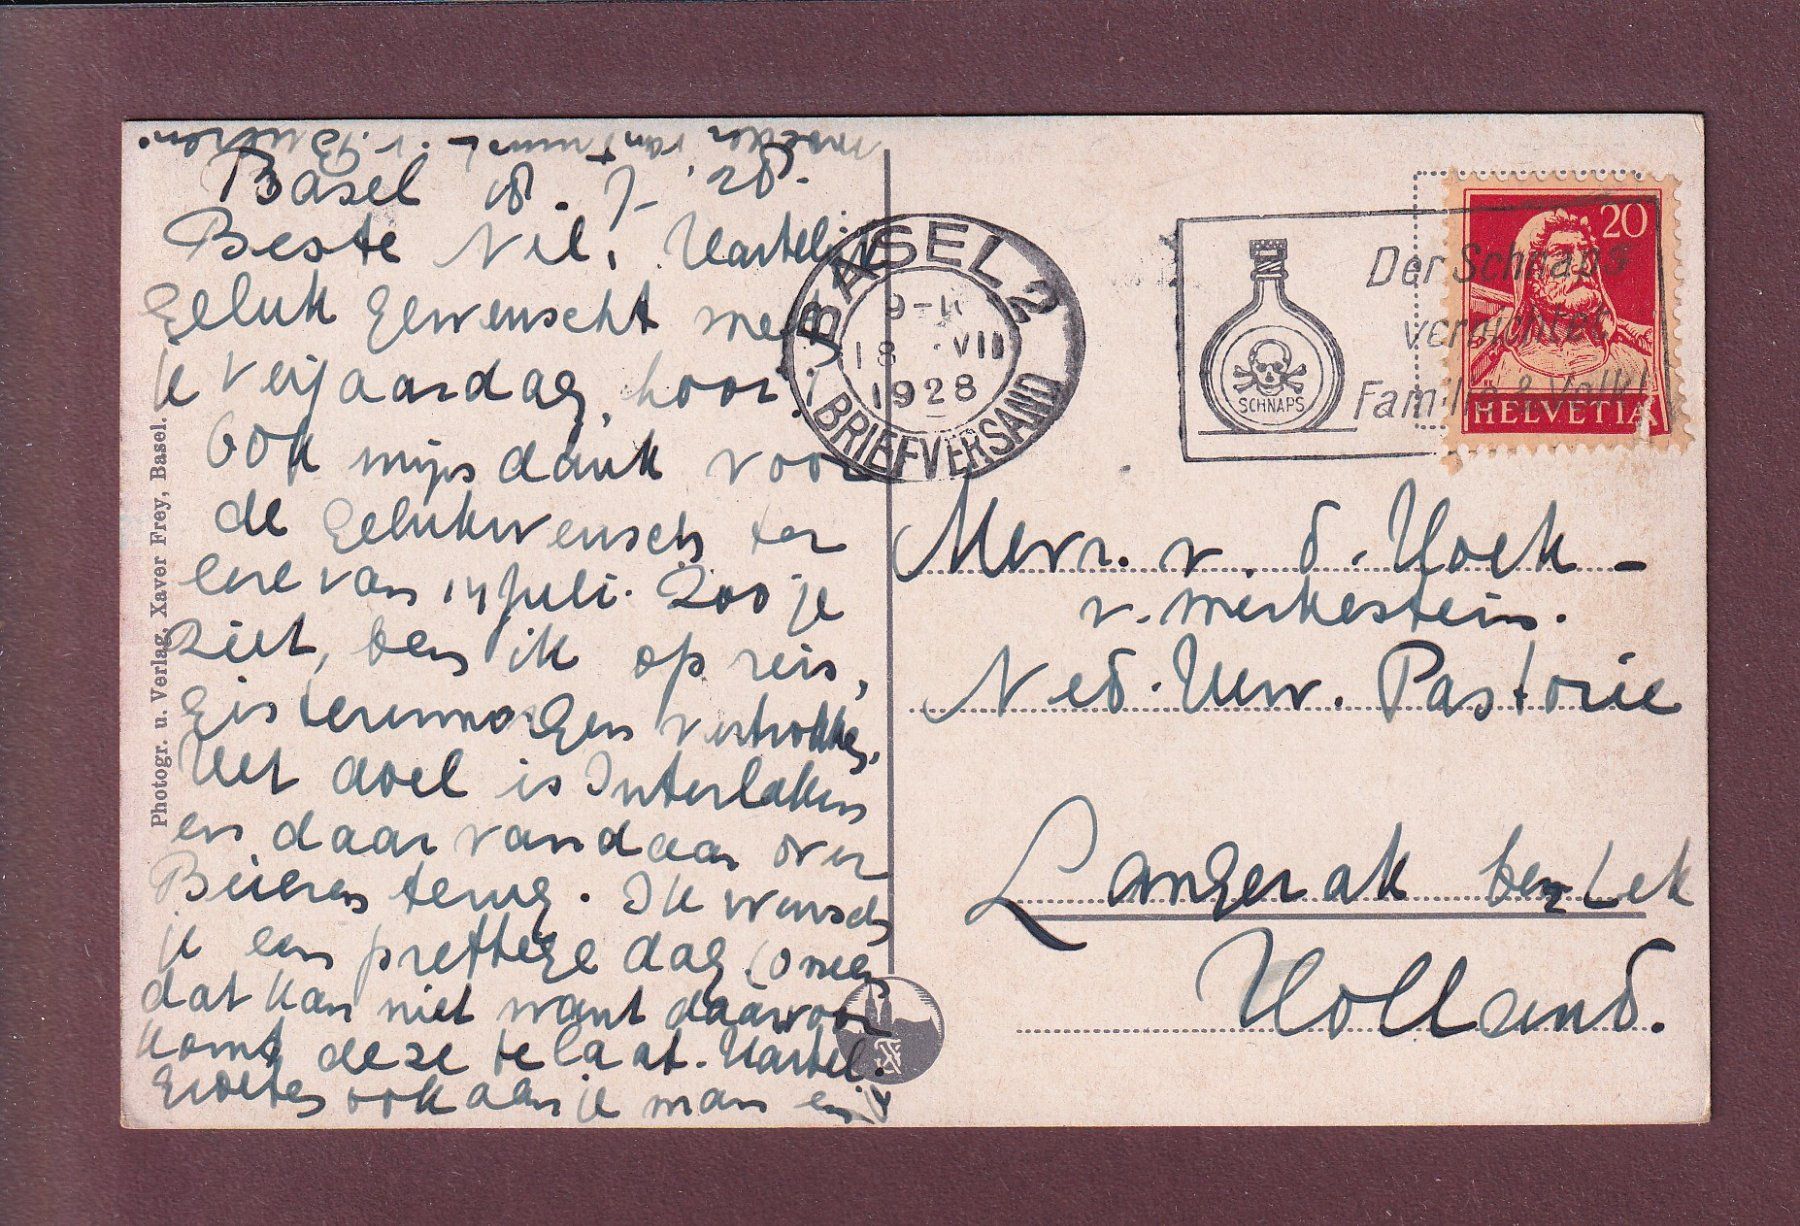 Basel 18.7.'28.
Beste Nel, Hartelijk
geluk gewenscht met
je verjaardag, hoor!
Ook mijn dank voor
de gelukwensch ter
eere van 14 juli. Zoo je
ziet, ben ik op reis,
gisterenmorgen vertrokken.
Het doel is Interlaken
en daar vandaan over
Beieren terug. Ik wensch
je een prettige dag (o neen
dat kan niet want daarvoor
komt deze te laat. Hartel.
groeten ook aan je man en
moeder van v. Buuren.
Photogr. u. Verlag, Xaver Frey, Basel.
BASEL 2
9-
18. VII
1928
BRIEFVERSAND
SCHNAPS
Der Schnaps
vernichtet
Familie & Volk!
20
HELVETIA
Mevr. v. d. Hoek -
v. Merkestein.
Ned. Herv. Pastorie
Langerak bez. Lek
Holland.